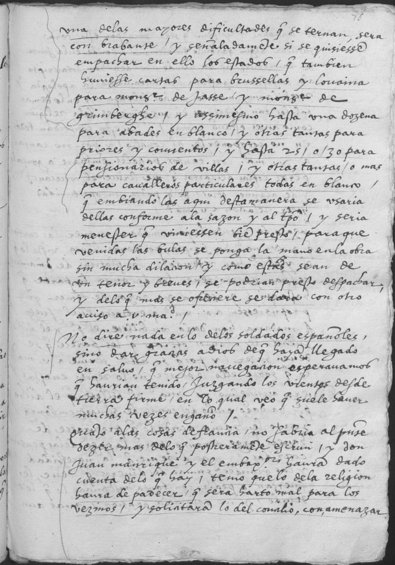 una delas mayores dificultades q se ternan, sera
con brabante / y señaladamēte si se quisiesse
empachar en ello los estados / q tambien
huviesse cartas para brussellas y lovaina
para monsr de Jasse / y monsr de
/ y assimesmo hasta una dozena
para abades en blanco / y otras tantas para
priores y conventos / y hasta 25 / o / 30 para
pensionarios de villas / y otras tantas / o mas
para cavalleros particulares todas en blanco /
q embiandolas aqui desta manera se usaria
dellas conforme ala sazon y al tpō / y seria
menester q viniessen presto / para que
venidas las bulas se ponga la mano en la obra
sin mucha dilacion / y como estas sean de
un tenor y breves / se podrian presto despachar
y delo q mas se ofreciere se dara con otro
aviso a v. mag. /
No dire nada en lo delos soldados españoles,
sino dar gracias a dios de q haya llegado
en salvo / q mejor navegacion esperavamos
q havrian tenido / Juzgando los vientos desde
tierra firme / en lo qual veo q suele haver
muchas vezes engaño /
quāto alas cosas de francia / no sabria al pnte
dezir mas delo q postreramēte escrivi / y don
Juan manrrique y el embaxor havra dado
cuenta delo q hay / temo que lo dela religion
havra de padecer / q sera harto mal para los
vezinos / y solicitara lo del concilio, con amenazar